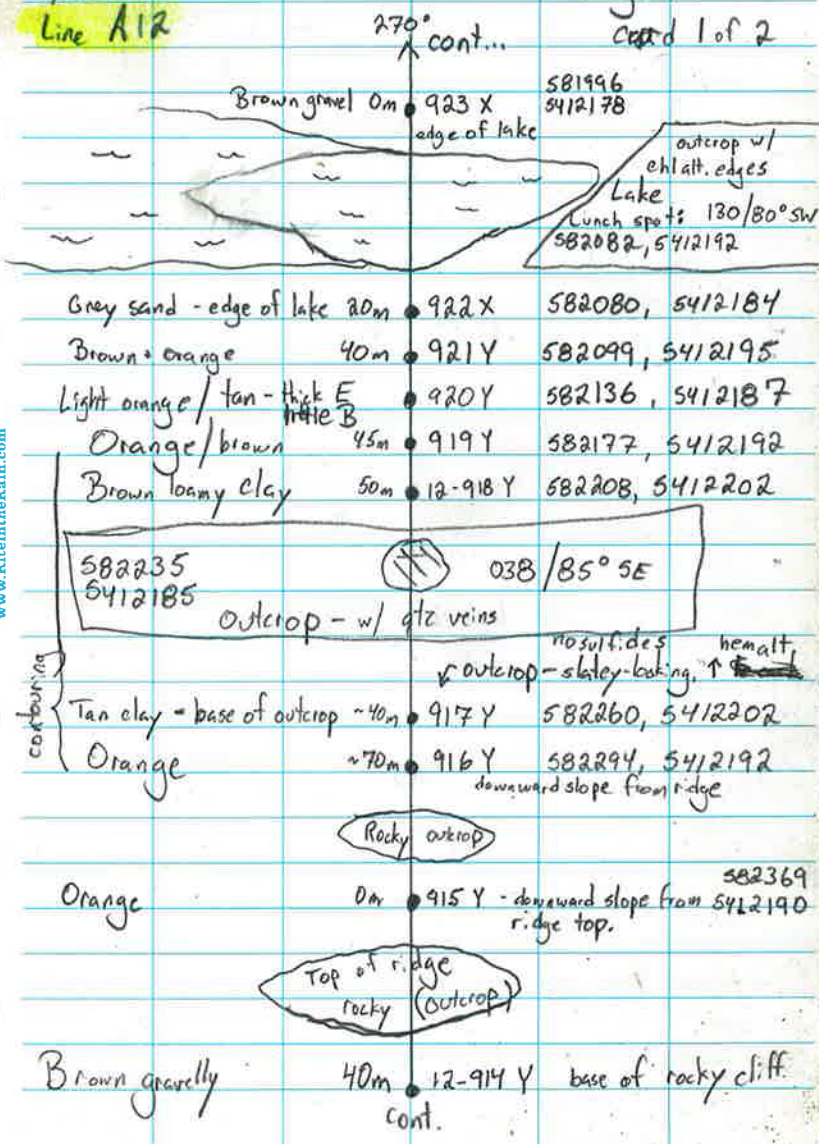 Line A12
270°
cont...
card 1 of 2
Brown gravel 0m 923 X 581996
5412178
edge of lake
outcrop w/
chl alt. edges
Lake
Lunch spot: 130/80° SW
582082, 5412192
Grey sand - edge of lake 20m 922 X 582080, 5412184
Brown + orange 40m 921 Y 582099, 5412195
Light orange / tan - thick E 920 Y 582136, 5412187
little B
Orange/brown 45m 919 Y 582177, 5412192
Brown loamy clay 50m 12-918 Y 582208, 5412202
582235 038/85° SE
5412185
outcrop - w/ qtz veins
no sulfides hem alt.
↙ outcrop - slatey-looking, ↑
contouring
Tan clay - base of outcrop ~40m 917 Y 582260, 5412202
Orange ~70m 916 Y 582294, 5412192
downward slope from ridge
Rocky outcrop
582369
Orange 0m 915 Y - downward slope from 5412190
ridge top.
Top of ridge
rocky (outcrop)
Brown gravelly 40m 12-914 Y base of rocky cliff
cont.
www.RiteintheRain.com